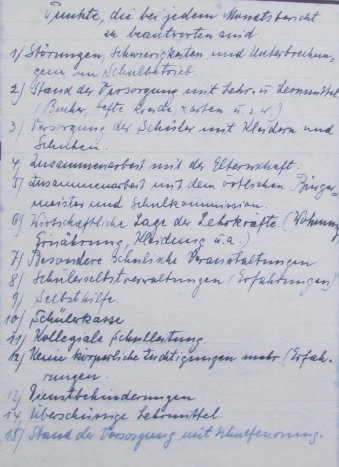 Punkte, die bei jedem Monatsbericht
zu beantworten sind.
1) Störungen, Schwierigkeiten und Unterbrechun-
gen im Schulbetrieb.
2) Stand der Versorgung mit Lehr- u. Lernmitteln
(Bücher, Hefte, Kreide, Karten u. s. w.)
3) Versorgung der Schüler mit Kleidern und
Schuhen.
4) Zusammenarbeit mit der Elternschaft.
5) Zusammenarbeit mit dem örtlichen Bürger-
meister und Schulkommission.
6) Wirtschaftliche Lage der Lehrkräfte. (Wohnung,
Ernährung, Kleidung u. a.)
7) Besondere schulische Veranstaltungen
8) Schülerselbstverwaltungen (Erfahrungen)
9) Selbsthilfe.
10) Schülerkasse
11) Kollegiale Schulleitung.
12) Keine körperliche Züchtigungen mehr (Erfah-
rungen.
13) Dienstbehinderungen
14) Überschüssige Lehrmittel.
15) Stand der Versorgung mit Schulfeuerung.